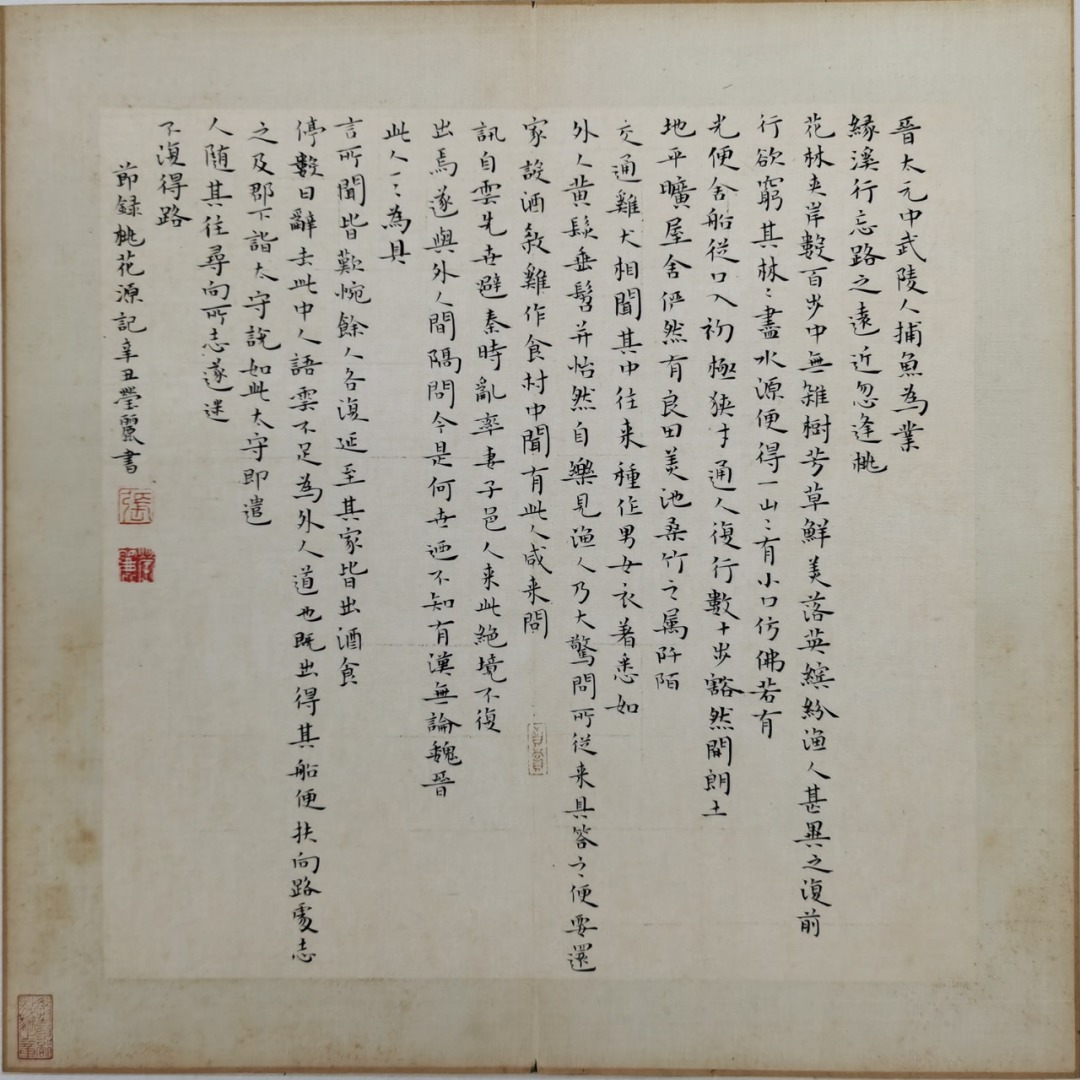 晉太元中武陵人捕魚為業
緣溪行忘路之遠近忽逢桃
花林夹岸數百步中無雜樹芳草鮮美落英繽紛漁人甚異之復前
行欲窮其林〻盡水源便得一山〻有小口仿佛若有
光便舍船從口入初極狹才通人復行數十步豁然開朗土
地平曠屋舍儼然有良田美池桑竹之属阡陌
交通雞犬相聞其中往来種作男女衣著悉如
外人黄髮垂髫并怡然自樂見漁人乃大驚問所從来具答之便要還
家設酒殺雞作食村中聞有此人咸来問
訊自雲先世避秦時亂率妻子邑人来此絕境不復
出焉遂與外人間隔問今是何世迺不知有漢無論魏晉
此人〻為具
言所聞皆歎惋餘人各復延至其家皆出酒食
停數日辭去此中人語雲不足為外人道也既出得其船便扶向路處志
之及郡下詣太守說如此太守即遣
人隨其往尋向所志遂迷
不復得路
節録桃花源記辛丑瑩靈書
張